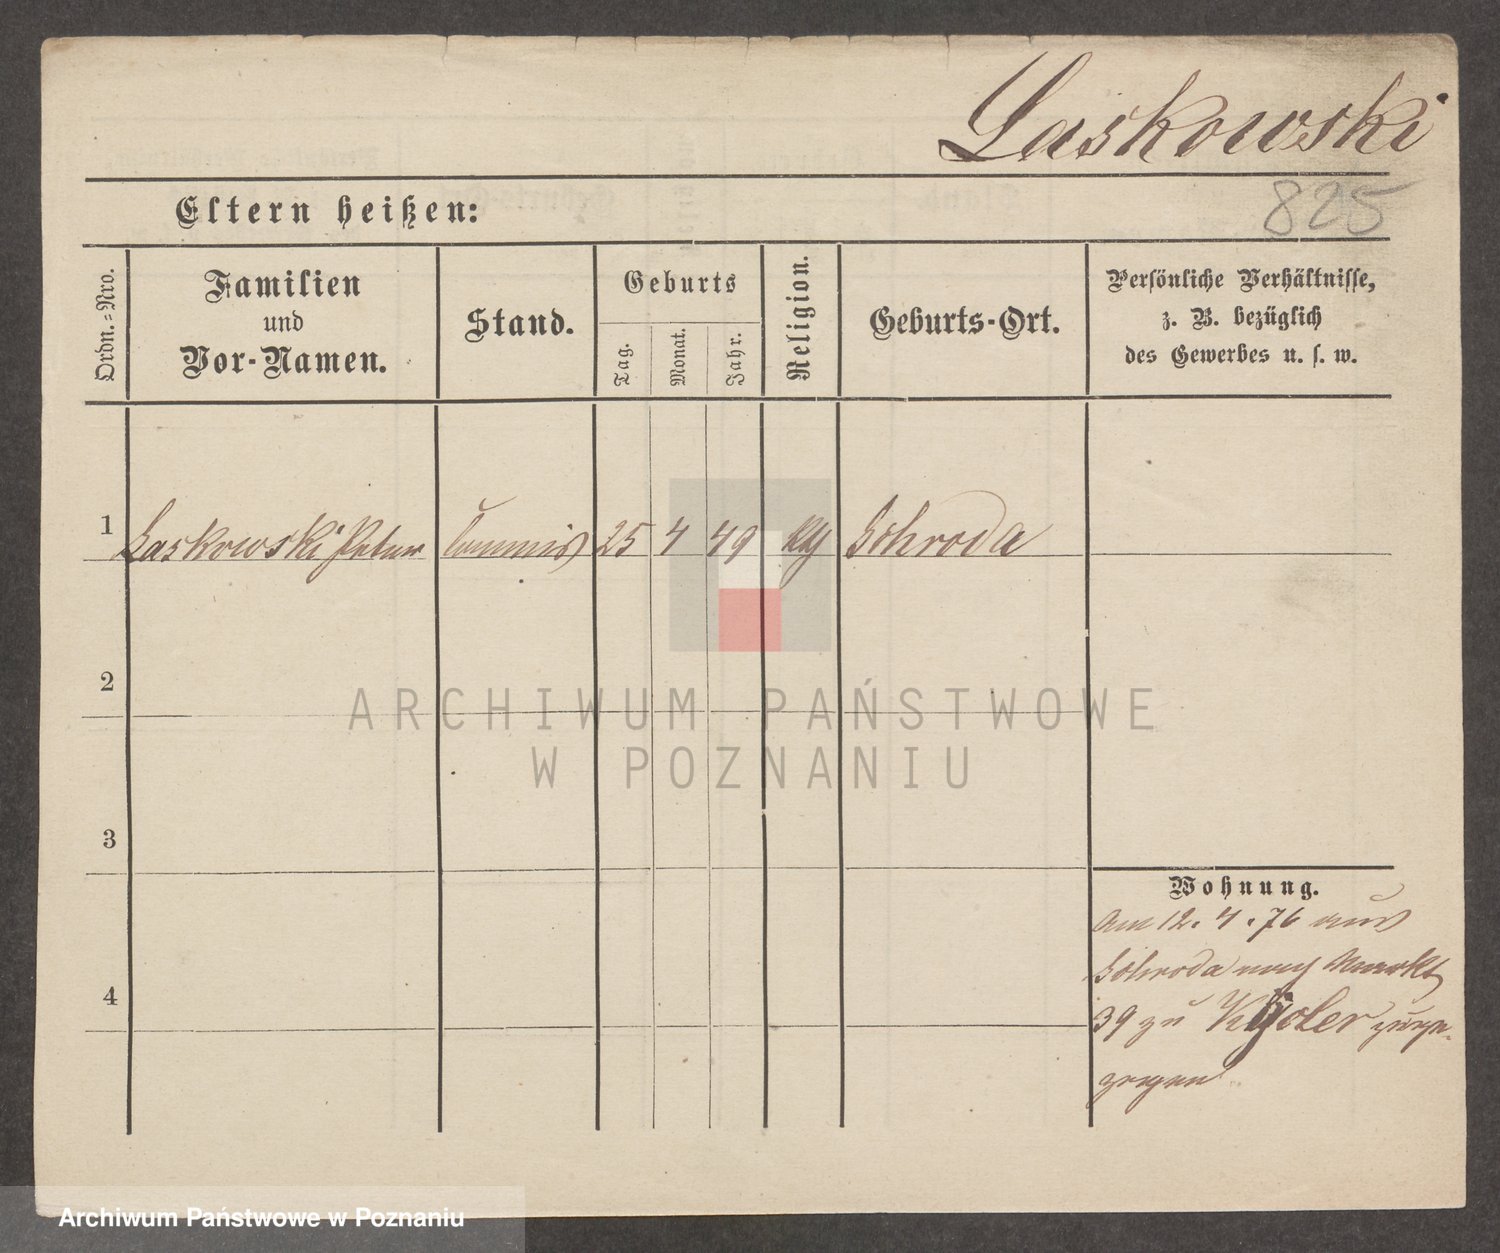 Laskowski
825
Eltern heißen:
Ordn.=Nro.
Familien
und
Vor-Namen.
Stand.
Geburts
Tag.
Monat.
Jahr.
Religion.
Geburts-Ort.
Persönliche Verhältnisse,
z. B. bezüglich
des Gewerbes u. s. w.
1 Laskowski Peter Commis 25 4 49 kth Schroda
2
3
4
Wohnung.
Am 12. 4. 76 aus
Schroda nach Markt
39 zu zuge-
zogen
ARCHIWUM PAŃSTWOWE
W POZNANIU
Archiwum Państwowe w Poznaniu